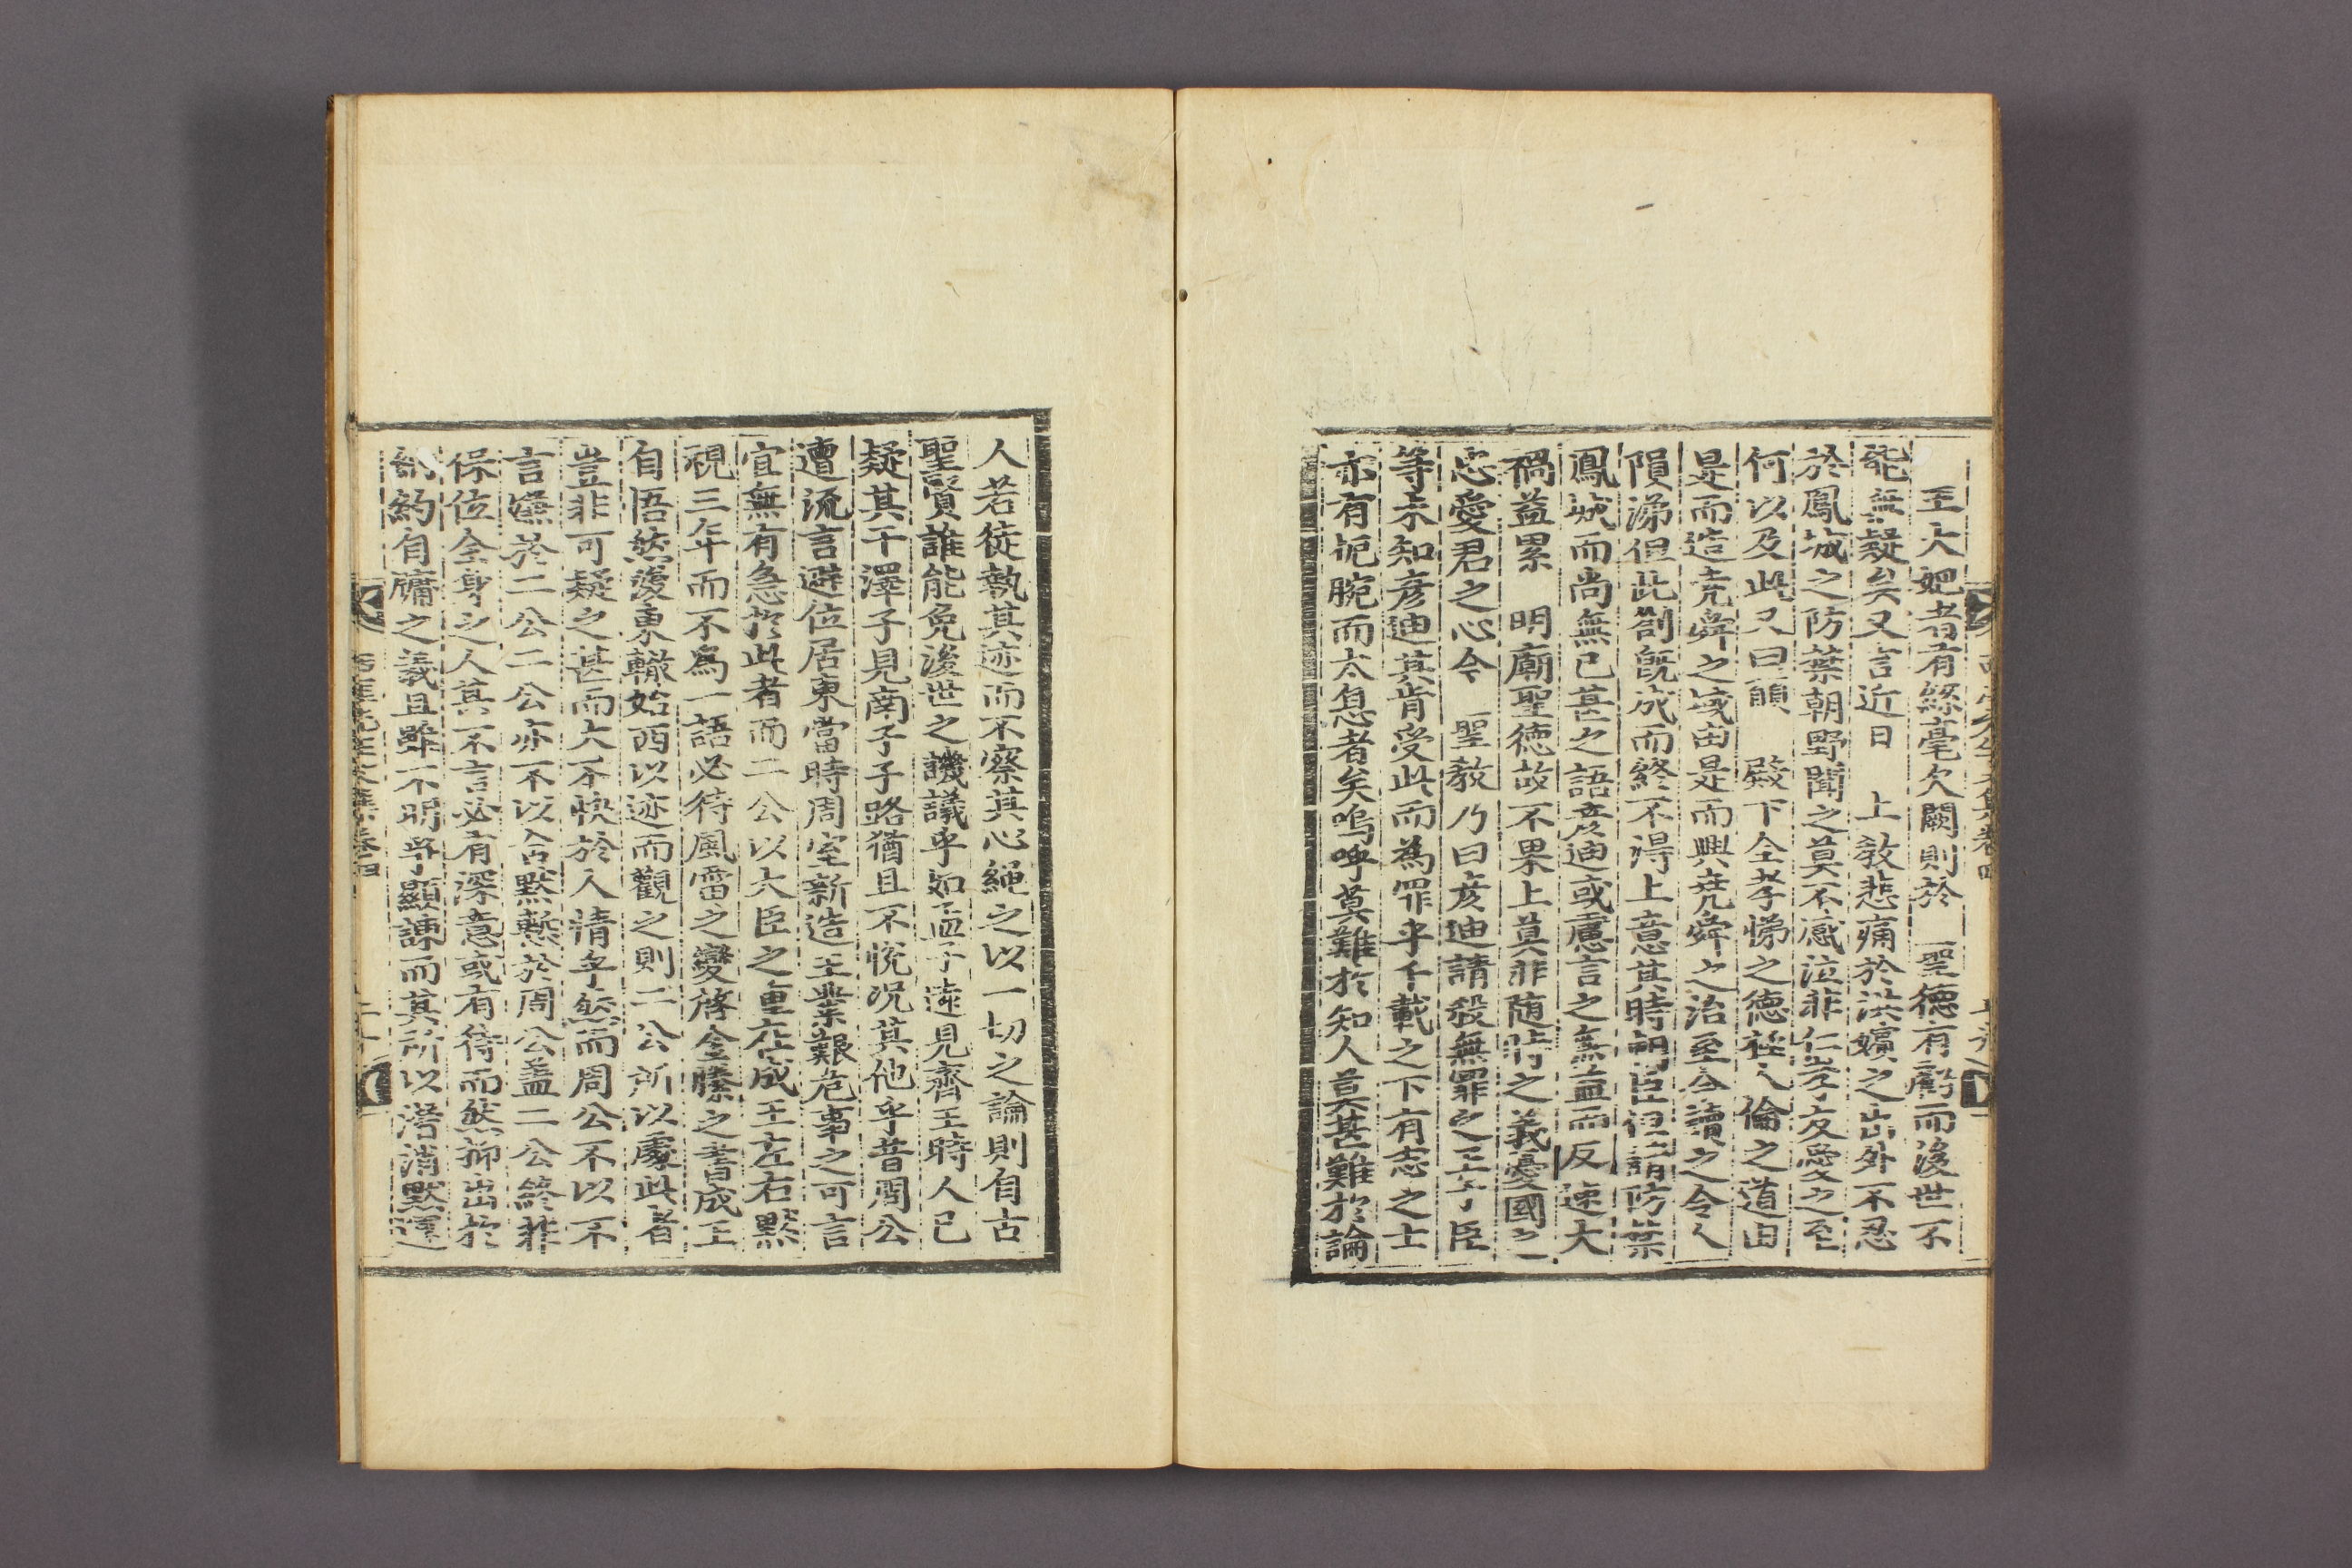 王大妃者有絲毫欠闕則於 聖德有虧而後世不
能無疑矣又言近日 上敎悲痛於洪嬪之出外不忍
於鳳城之防禁朝野聞之莫不感泣非仁孝友愛之至
何以及此又曰願 殿下全孝悌之德盡人倫之道由
是而造堯舜之域由是而興堯舜之治至今讀之令人
隕涕但此劄旣成而終不得上意其時朝臣但請防禁
鳳城而尚無已甚之語彦迪或慮言之無益而反速大
禍益累 明廟聖德故不果上莫非随時之義憂國之
忠愛君之心今 聖敎乃曰彦迪請殺無罪之王子臣
等未知彦迪其肯受此而為罪乎千載之下有志之士
亦有扼腕而太息者矣嗚呼莫難於知人莫甚難於論
人若徒執其迹而不察其心繩之以一切之論則自古
聖賢誰能免後世之譏議乎如孟子遠見齊王時人已
疑其干澤子見南子子路猶且不悅况其他乎昔周公
遭流言避位居東當時周室新造王業艱危事之可言
宜無有急於此者而二公以大臣之重在成王左右默
視三年而不爲一語必待風雷之變啓金縢之書成王
自悟然後東轍始西以迹而觀之則二公所以處此者
豈非可疑之甚而大不快於人情乎然而周公不以不
言嫌於二公二公亦不以含默慙於周公盖二公終非
保位全身之人其不言必有深意或有待而然抑出於
納約自牖之義且雖不明爭顯諫而其所以潜消默運